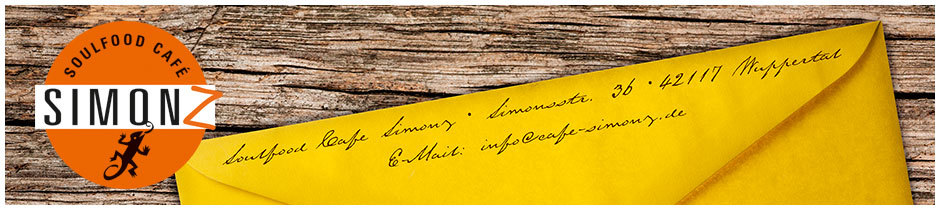 SOULFOOD CAFÉ
SIMONZ
Soulfood Cafe Simonz • Simonsstr. 36 • 42117 Wuppertal
E-Mail: info@cafe-simonz.de